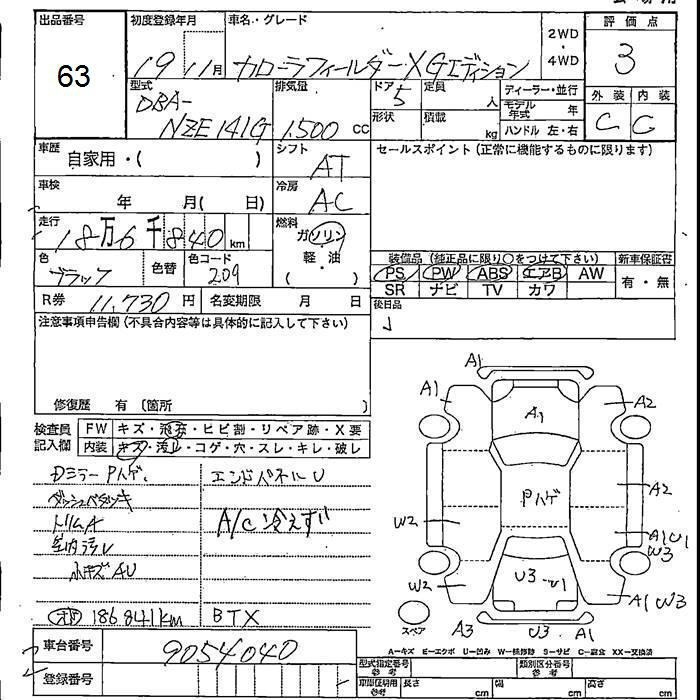 出品番号 初度登録年月 車名・グレード 2WD・4WD 評価点
63 19 11月 カローラフィールダー X Gエディション 3
型式 排気量 ドア 定員 ディーラー・並行 外装 内装
DBA- 5 人 モデル年式 年 C C
NZE141G 1,500 cc 形状 積載 kg ハンドル 左・右
車歴 自家用・( ) シフト AT セールスポイント(正常に機能するものに限ります)
車検 年 月( 日) 冷房 AC
走行 18万6千840km 燃料 ガソリン
軽・油
( )
色 ブラック 色替 色コード 209
装備品(純正品に限り○をつけて下さい) 新車保証書
PS PW ABS エアB AW 有・無
SR ナビ TV カワ
R券 11,730円 名変期限 月 日 後日品
注意事項申告欄(不具合内容等は具体的に記入して下さい)
修復歴 有 (箇所 )
検査員記入欄 FW キズ・飛石・ヒビ割・リペア跡・X要
内装 キズ・汚れ・コゲ・穴・スレ・キレ・破レ
DミラーPハゲ. エンドパネルU
トリムA A/C 冷えず
室内汚レ
小キズAU
186841km BTX
A1
A1 A1 A2
A2
Pハゲ
W2 A1U1
W3
W2 U3 U1 A1W3
スペア A3 U3 A1
A-キズ E-エクボ U-凹み W-補修跡 S-サビ C-腐食 XX-交換済
車台番号 9054040
登録番号
型式指定番号 参考 類別区分番号 参考
車庫証明用 参考 長さ cm 幅 cm 高さ cm